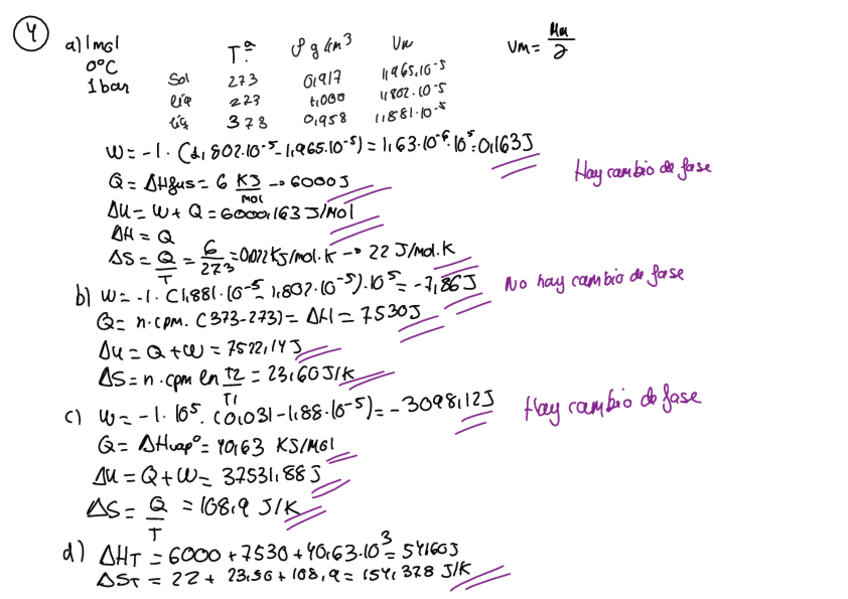 4
a) 1mol
0°C
1 bar
Tª ρ g/cm³ Vm
Vm = Mm/ρ
Sol 273 0,917 1,965.10⁻⁵
líq 273 1,000 1,802.10⁻⁵
líq 373 0,958 1,881.10⁻⁵
W = -1 · (1,802.10⁻⁵ - 1,965.10⁻⁵) = 1,63.10⁻⁶.10⁵ = 0,163J
Hay cambio de fase
Q = ΔHfus = 6 KJ/mol → 6000J
ΔU = W + Q = 6000,163 J/Mol
ΔH = Q
ΔS = Q/T = 6/273 = 0,022 KJ/mol.K → 22 J/mol.K
b) W = -1 · (1,881.10⁻⁵ - 1,802.10⁻⁵).10⁵ = -7,86J
No hay cambio de fase
Q = n.cpm. (373-273) = ΔH = 7530J
ΔU = Q + W = 7522,14J
ΔS = n.cpm ln T2/T1 = 23,60 J/K
c) W = -1 · 10⁵. (0,031 - 1,88.10⁻⁵) = -3098,12J
Hay cambio de fase
Q = ΔHvapº = 40,63 KJ/Mol
ΔU = Q + W = 37531,88 J
ΔS = Q/T = 108,9 J/K
d) ΔHT = 6000 + 7530 + 40,63.10³ = 54160J
ΔST = 22 + 23,56 + 108,9 = 154,378 J/K